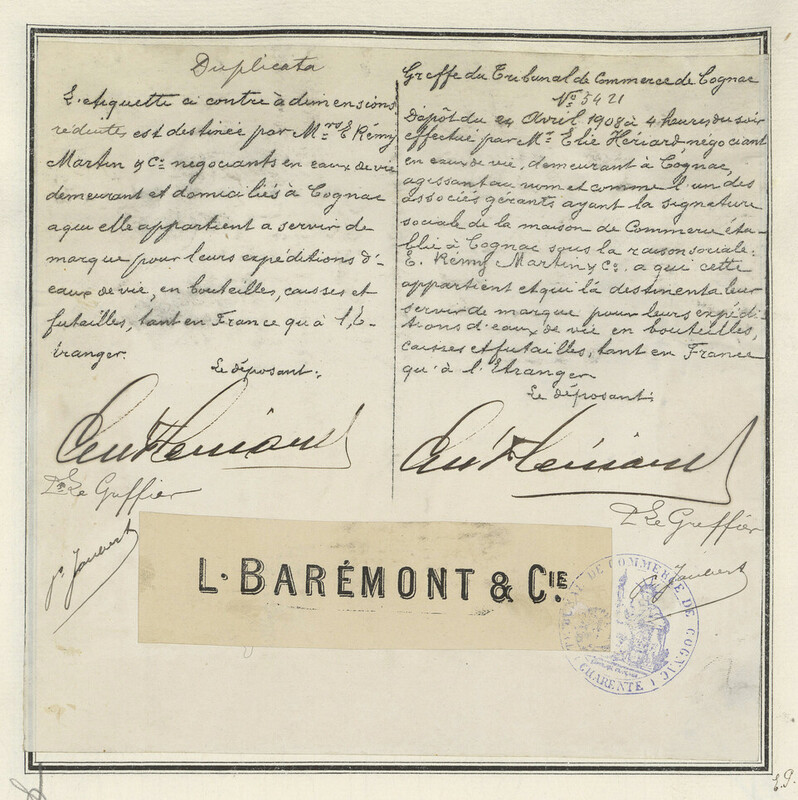 Duplicata
L'etiquette ci contre à dimensions
réduites est destinée par Mrs E Rémy
Martin & Cie negociants en eaux de vie
demeurant et domiciliés à Cognac
a qui elle appartient a servir de
marque pour leurs expéditions d'-
eaux de vie, en bouteilles, caisses et
futailles, tant en France qu'à l'E-
tranger.
Le déposant:
Dn Le Greffier
Jaubert
Greffe du Tribunal de Commerce de Cognac
No 5421
Dépôt du 24 Avril 1908 à 4 heures du soir
effectué par Mr Elie Hériard, négociant
en eaux de vie, demeurant à Cognac,
agissant au nom et comme l'un des
associés gérants ayant la signature
sociale de la maison de Commerce éta-
blie à Cognac sous la raison sociale:
E. Rémy Martin & Cie. a qui cette
appartient et qui l'a destinent a leur
servir de marque pour leurs expédi-
tions d'eaux de vie en bouteilles,
caisses et futailles, tant en France
qu'à l'Etranger
Le déposant:
Dn Le Greffier
Jaubert
L. BARÉMONT & CIE.
TRIBUNAL DE COMMERCE DE COGNAC
CHARENTE
E.G.